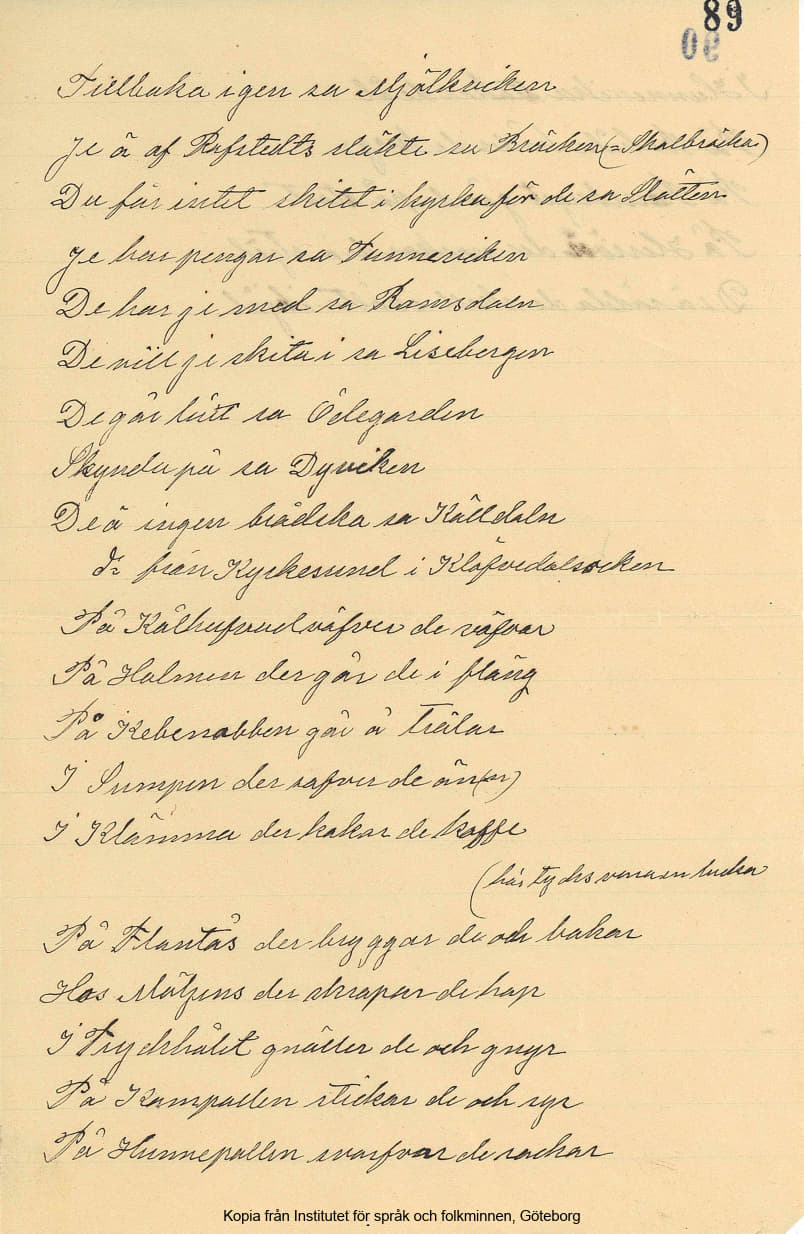 89
90
Tillbaka igen sa Mjölkviken
Je ä af Rafstedts släkte sa Bräcken (= Skalbräcka)
Du får intet skitet i kyrka för de sa Slätten
Je har pengar sa Tunneviken
De har je med sa Ramsdaln
De vill je skita i sa Lisebergen
De går lütt sa Ödegarden
Skynda på sa Dyviken
De ä ingen brådska sa Källdaln
dº från Kyrkesund i Klöfvedalsocken
På Kålhufvud väfver de väfvar
På Holmen der går de i fläng
På Kebenabben går å trälar
I Sumpen der safver de än(n)
I Klämma der kokar de kaffe
(här tycks vara en lucka
På Flantås der bryggar de och bakar
Hos Mätzens der skrapar de hap
I Tryckhålet gnäller de och gnyr
På Kampallen stickar de och syr
På Hunnepallen svarfvar de rackar
Kopia från Institutet för språk och folkminnen, Göteborg